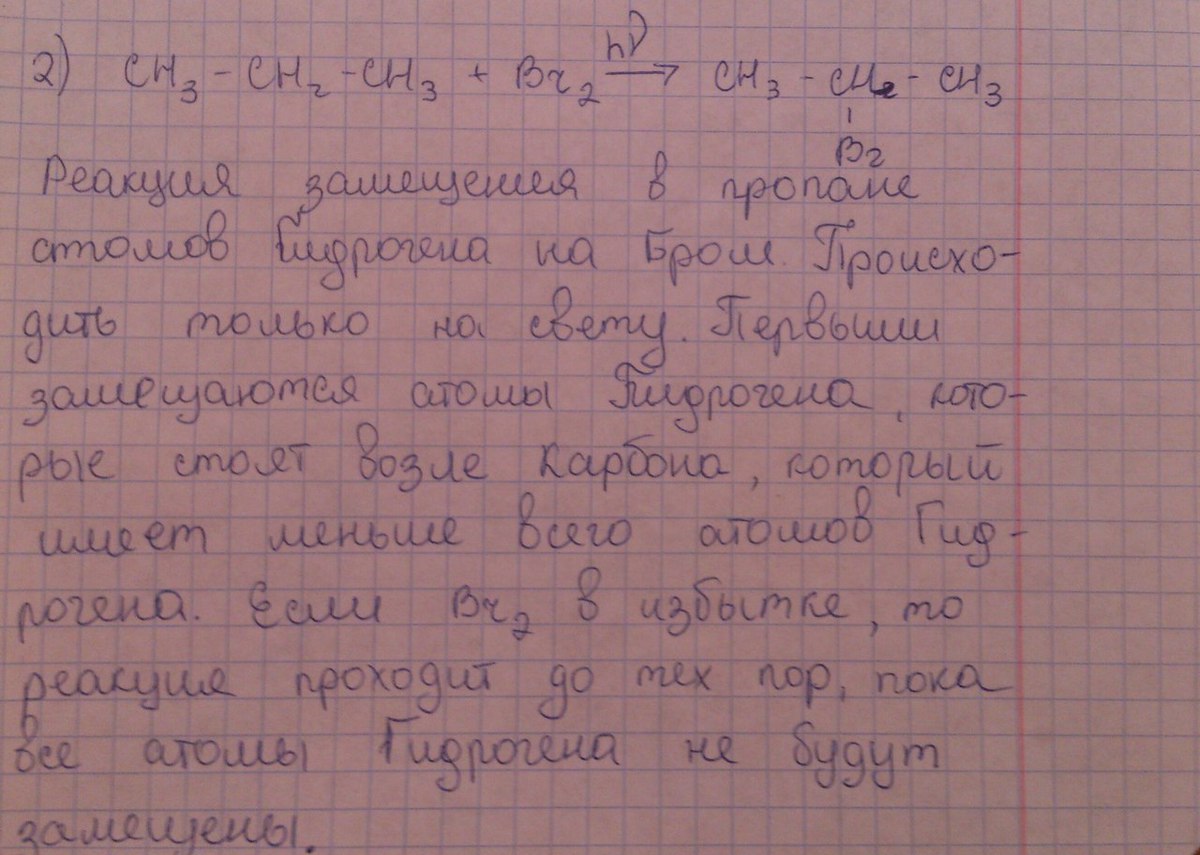 2) CH₃ - CH₂ - CH₃ + Br₂ hν→ CH₃ - CH₂ - CH₃
Br
Реакция замещения в пропане
атомов Гидрогена на Бром. Происхо-
дить только на свету. Первыми
замещаются атомы Гидрогена, кото-
рые стоят возле Карбона, который
имеет меньше всего атомов Гид-
рогена. Если Br₂ в избытке, то
реакция проходит до тех пор, пока
все атомы Гидрогена не будут
замещены.